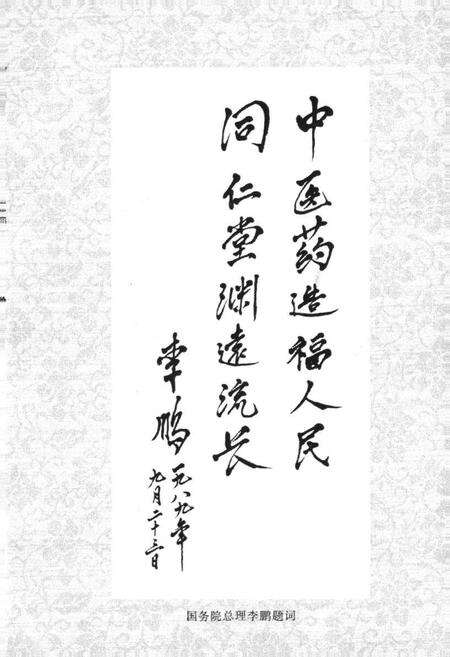 中医药造福人民
同仁堂渊远流长
李鹏
一九八九年
九月二十三日
国务院总理李鹏题词